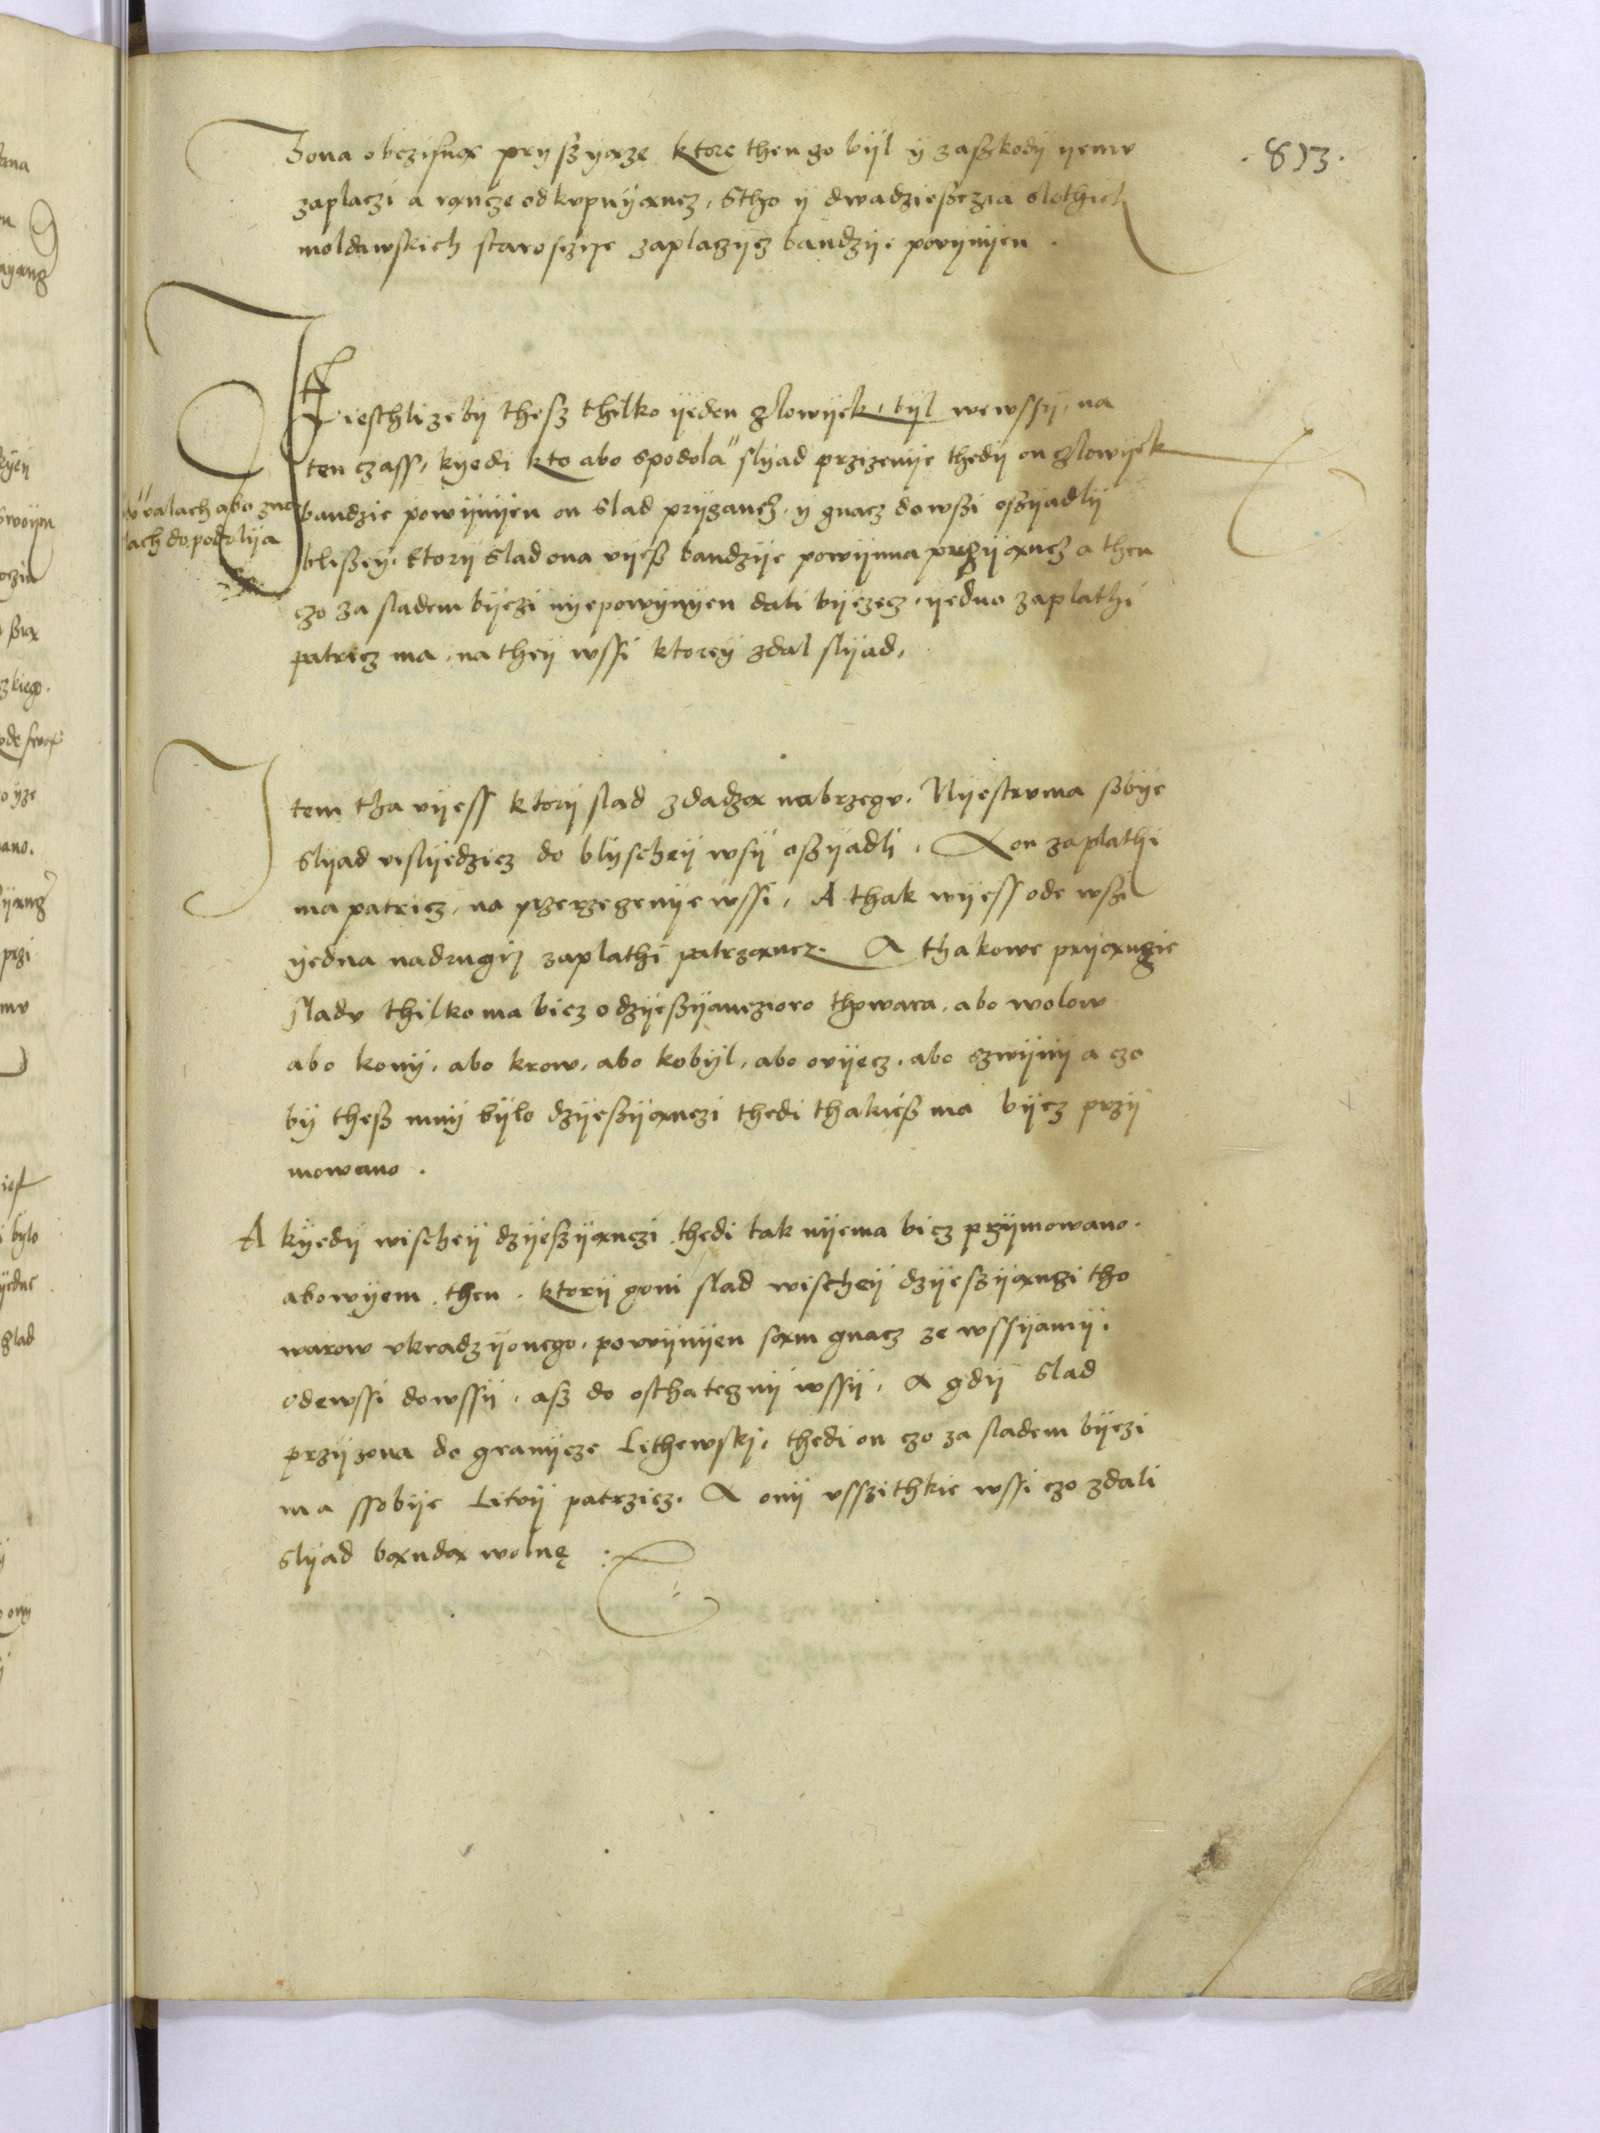 ·853·
Zona obczisnæ pryszyaze ktore then go byl y zaszkody yemv
zaplaczi a rancze odkvpuyancz, Stho y dwadzieszczia slothich
moldawskich staroszczye zaplaczycz bandzye powynyen.
Jtem
Jesthli zeby thesz thilko yeden czlowyek, byl we wssy, na
ten czass, kyedi kto abo spodola" slyad przizenye thedy on czlowyek
v valach abo zvo
lach do podolya
bandzie powynyen on slad prygancz, y gnacz do wszi oszyadly
bliszey, ktory slad ona vyesz bandzye powynna przyyancz a then
czo za sladem byezi nyepowynyen dali byezecz, yedno zaplathi
patricz ma, na they wssi ktorey zdal slyad,
Jtem tha vyess ktory slad zdadzæ na brzegv. Nyestrv ma sobye
slyad vislyedzicz do blyschey wsy oszyadli, A on zaplathi
ma patricz, na przerzegenye wssi, A thak wyess ode wszi
yedna na drugiz zaplathi patrzancz. A thakowe pryianzie
sladv thilko ma bicz o dzyeszyanczioro thowara, abo wolow
abo kony, abo krow, abo kobyl, abo ovyecz, abo szwyny a czo
by thesz mny bylo dzyeszyanczi thedi thakiesz ma bycz przy
mowano.
A kyedy wischey dzyeszyanczi thedi tak nyema bicz przymowano.
abowyem then. ktory goni slad wischey dzyeszyanzi tho
warow vkradzyonego, powynyen sam gnacz ze wssyamy,
odewssi dowssy, asz do osthateczny wssy, A gdy slad
przyzona do granycze Lithewsky, thedi on czo za sladem byezi
ma ssobye Litvy patrzicz. A ony vsszithkie wssi czo zdali
slyad bandæ wolnę :